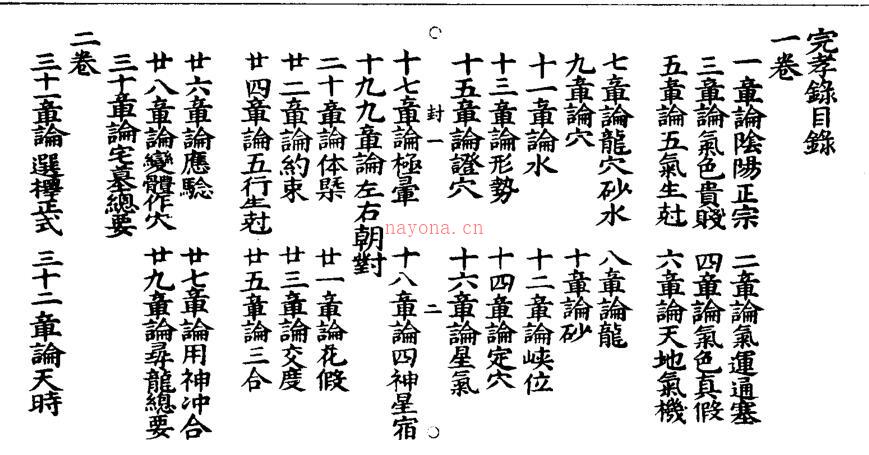 完孝錄目錄
一卷
一章論陰陽正宗 二章論氣運通塞
三章論氣色貴賤 四章論氣色真假
五章論五氣生尅 六章論天地氣機
七章論龍穴砂水 八章論龍
九章論穴 十章論砂
十一章論水 十二章論峽位
十三章論形勢 十四章論定穴
十五章論證穴 十六章論星氣
封一 二
十七章論極暈 十八章論四神星宿
十九九章論左右朝對
二十章論体槩 廿一章論花假
廿二章論約束 廿三章論交度
廿四章論五行生尅 廿五章論三合
廿六章論應驗 廿七章論用神冲合
廿八章論變體作穴 廿九章論尋龍總要
三十章論宅墓總要
二卷
三十一章論選擇正式 三十二章論天時
nayona.cn